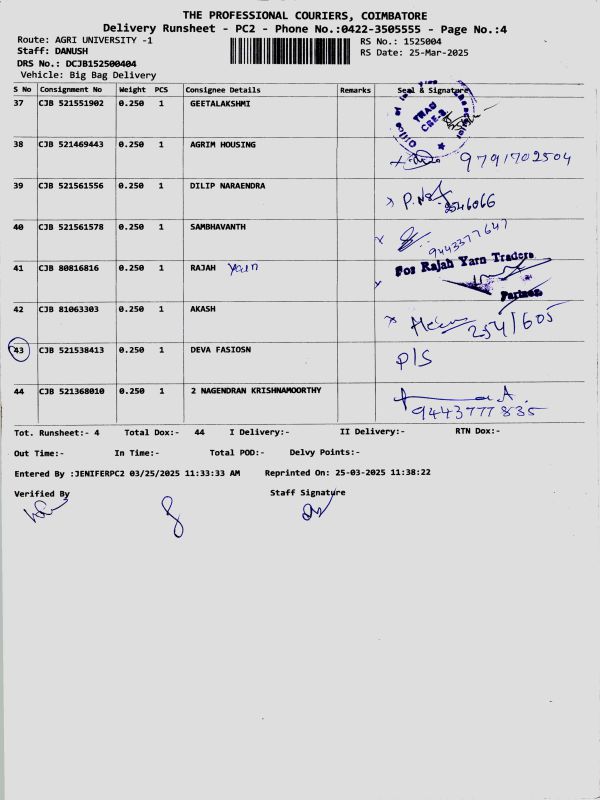 THE PROFESSIONAL COURIERS, COIMBATORE
Delivery Runsheet - PC2 - Phone No.:0422-3505555 - Page No.:4
Route: AGRI UNIVERSITY -1 RS No.: 1525004
Staff: DANUSH RS Date: 25-Mar-2025
DRS No.: DCJB152500404
Vehicle: Big Bag Delivery
S No Consignment No Weight PCS Consignee Details Remarks Seal & Signature
37 CJB 521551902 0.250 1 GEETALAKSHMI
38 CJB 521469443 0.250 1 AGRIM HOUSING 9791702504
39 CJB 521561556 0.250 1 DILIP NARAENDRA 2546066
40 CJB 521561578 0.250 1 SAMBHAVANTH 9443377647
41 CJB 80816816 0.250 1 RAJAH Yarn For Rajah Yarn Traders
Partner
42 CJB 81063303 0.250 1 AKASH 254/605
43 CJB 521538413 0.250 1 DEVA FASIOSN P/S
44 CJB 521368010 0.250 1 2 NAGENDRAN KRISHNAMOORTHY 9443777835
Tot. Runsheet:- 4 Total Dox:- 44 I Delivery:- II Delivery:- RTN Dox:-
Out Time:- In Time:- Total POD:- Delvy Points:-
Entered By :JENIFERPC2 03/25/2025 11:33:33 AM Reprinted On: 25-03-2025 11:38:22
Verified By Staff Signature